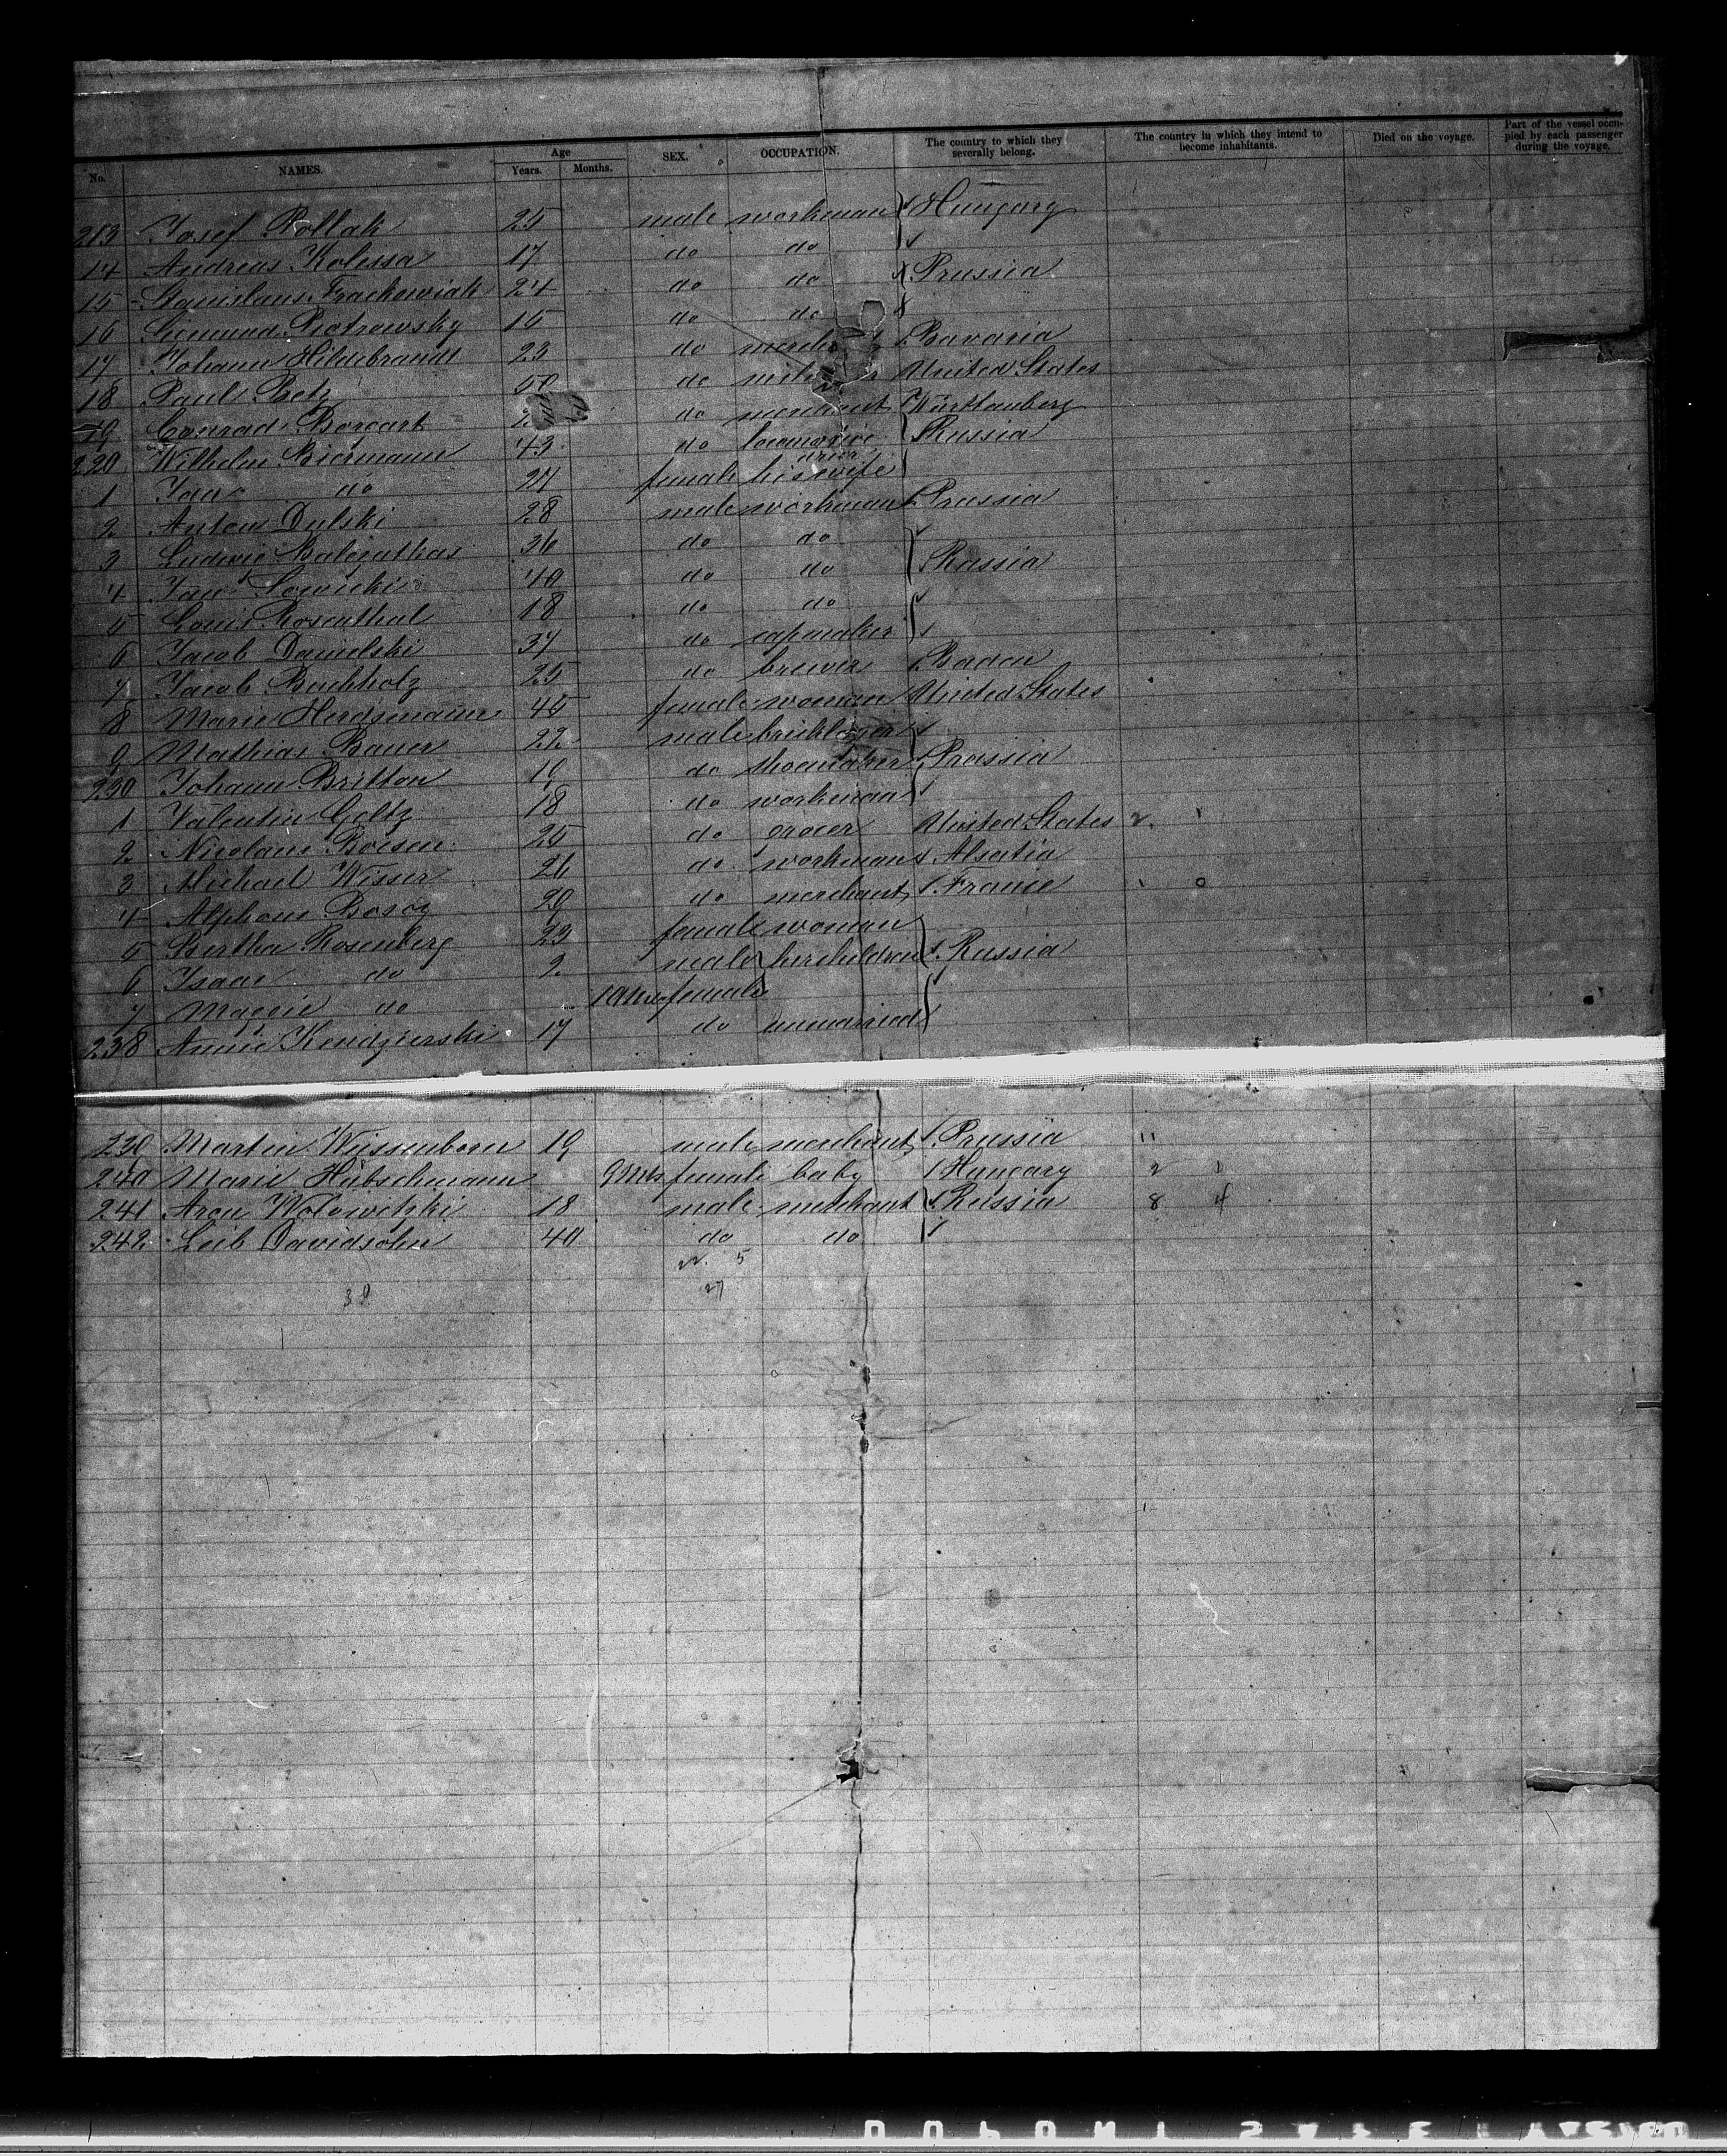 No. NAMES. Age Years. Months. SEX. OCCUPATION. The country to which they severally belong. The country in which they intend to become inhabitants. Died on the voyage. Part of the vessel occupied by each passenger during the voyage.
213 Josef Pollak 25 male workman Hungary
14 Andreas Kolessa 17 do do
15 Stanislaus Frackowiak 24 do do Prussia
16 Sicmund Piotrowsky 15 do do
17 Johann Hildebrandt 23 do Bavaria
18 Paul Betz 50 do United States
19 Conrad Borcart do merchant Württanberg
220 Wilhelm Biermann 43 do locomotive driver Russia
1 do 24 female his wife
2 Anton Dulski 28 male workman Prussia
3 Ludwig 36 do do
4 Jan Sowicki 40 do do Russia
5 Louis Rosenthal 18 do do
6 Jacob Danielski 34 do capmaker
7 Jacob Buchholz 25 do brewer Baden
8 Marie 45 female woman United States
9 Mathias Bauer 22 male bricklayer
230 Johann Britton 19 do shoemaker Prussia
1 Valentin Goltz 18 do workman
2 Nicolaus Boesen 25 do grocer United States 2
3 Michael Wisser 26 do workman Alsatia
4 Alphons Boscq 29 do merchant France
5 Bertha Rosenberg 23 female woman
6 Isaac do 2 male her children Russia
7 Maggie do 10 Mts female
238 Annie Kendzierski 17 do unmarried
239 Martin Weissenborn 19 male merchant Prussia 11
240 Marie Hübschmann 9 Mts female baby Hungary 2 1
241 Aron Wolowitzki 18 male merchant Russia 8 4
242 Leib Davidsohn 40 do do
5
27